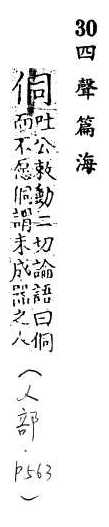 30四聲篇海
侗吐公敕動二切論語曰侗
而不愿侗謂未成器之人
(人部·p563)